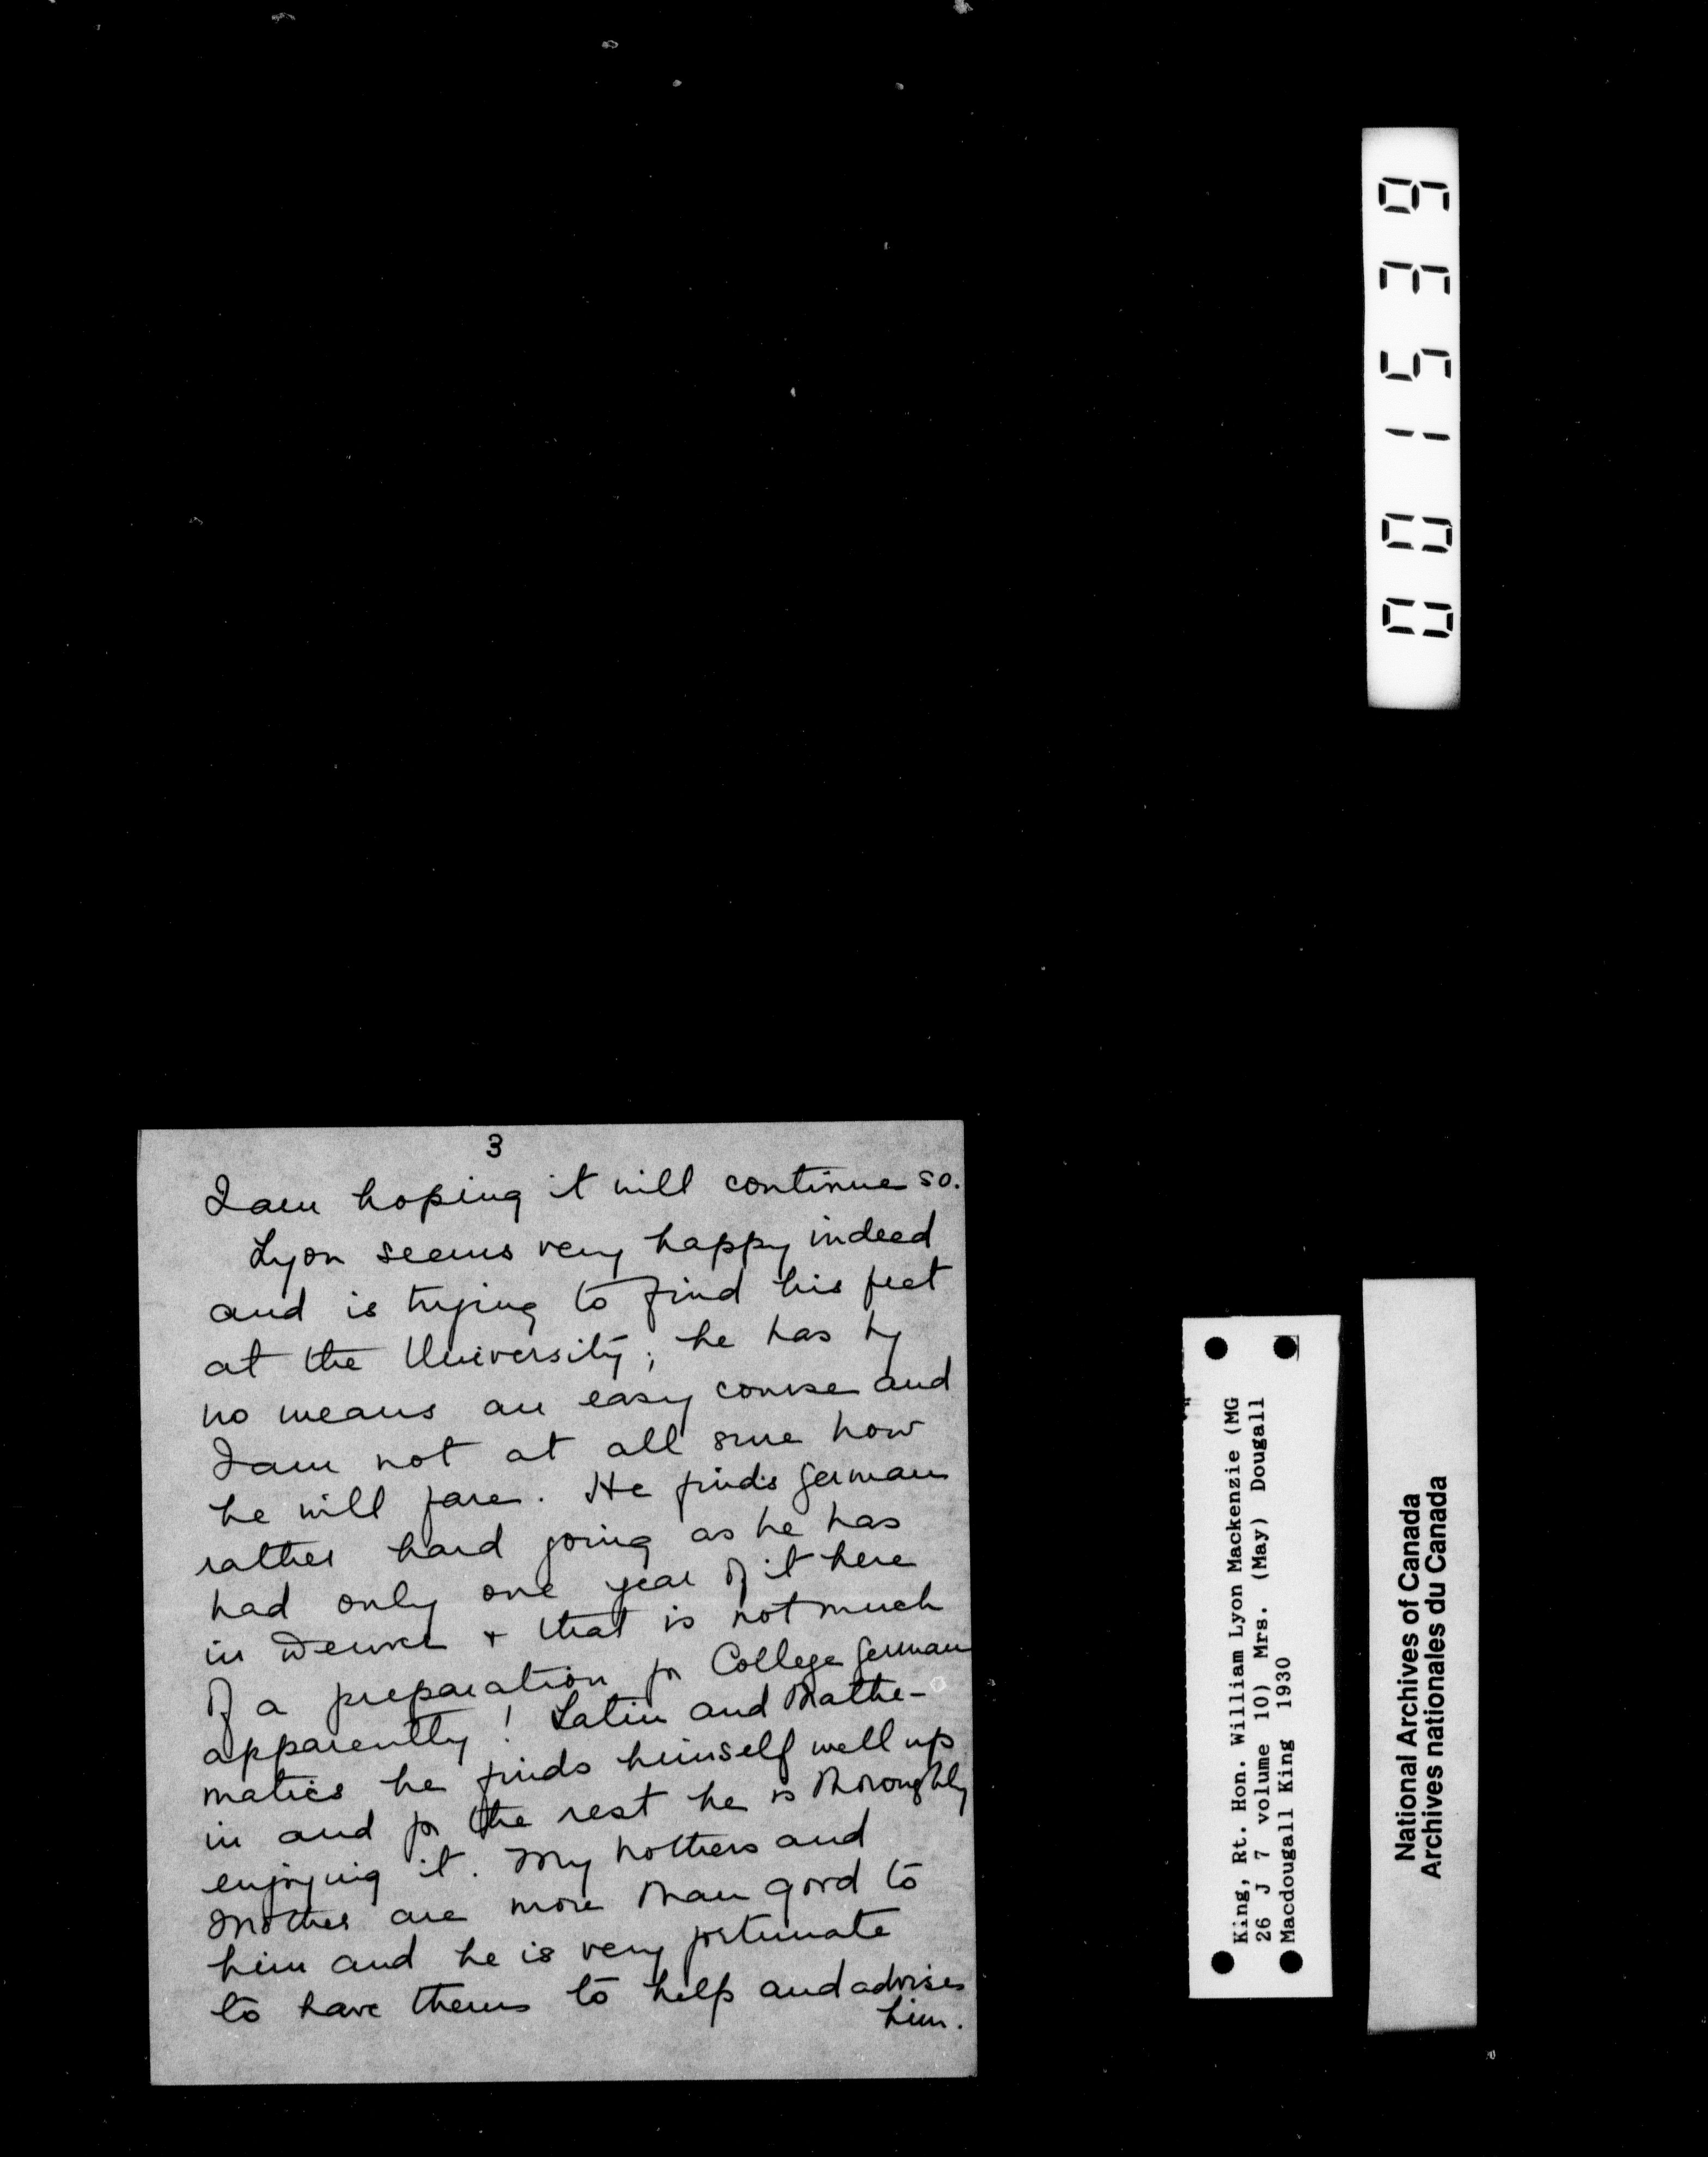 3
I am hoping it will continue so.
Lyon seems very happy indeed
and is trying to find his feet
at the University; he has by
no means an easy course and
I am not at all sure how
he will fare. He finds German
rather hard going as he has
had only one year of it here
in Denver + that is not much
of a preparation for College German
apparently! Latin and Mathe-
matics he finds himself well up
in and for the rest he is thoroughly
enjoying it. My brothers and
Mother are more than good to
him and he is very fortunate
to have them to help and advise
him.
001539
King, Rt. Hon. William Lyon Mackenzie (MG
26 J 7 volume 10) Mrs. (May) Dougall
Macdougall King 1930
National Archives of Canada
Archives nationales du Canada